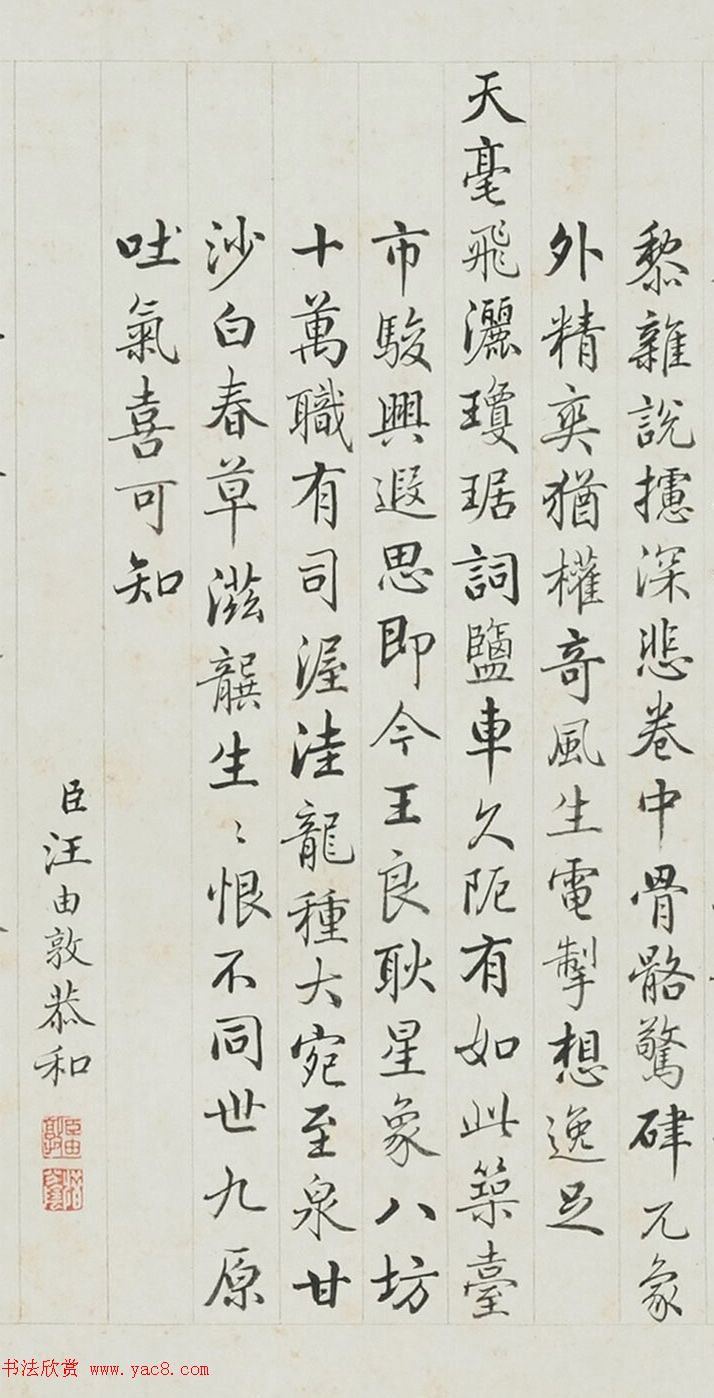 黎雜說攄深悲卷中骨骼驚硉兀象
外精爽猶權奇風生電掣想逸足
天毫飛灑瓊琚詞鹽車久阨有如此築臺
市駿興遐思即今王良耿星象八坊
十萬職有司渥洼龍種大宛至泉甘
沙白春草滋龔生〻恨不同世九原
吐氣喜可知
臣汪由敦恭和
臣由敦
书法欣赏 www.yac8.com